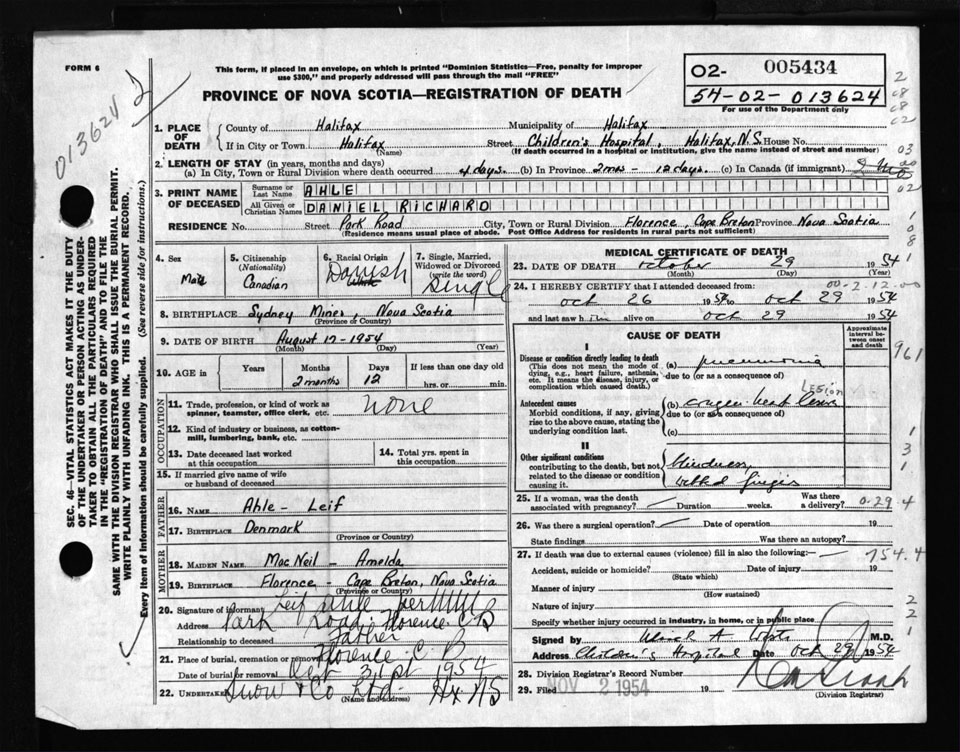 FORM 6
This form, if placed in an envelope, on which is printed "Dominion Statistics—Free, penalty for improper
use $300," and properly addressed will pass through the mail "FREE"
PROVINCE OF NOVA SCOTIA—REGISTRATION OF DEATH
02- 005434
54-02-013624
For use of the Department only
013624
SEC. 46—VITAL STATISTICS ACT MAKES IT THE DUTY
OF THE UNDERTAKER OR PERSON ACTING AS UNDER-
TAKER TO OBTAIN ALL THE PARTICULARS REQUIRED
IN THE "REGISTRATION OF DEATH" AND TO FILE THE
SAME WITH THE DIVISION REGISTRAR WHO SHALL ISSUE THE BURIAL PERMIT.
WRITE PLAINLY WITH UNFADING INK. THIS IS A PERMANENT RECORD.
Every item of information should be carefully supplied. (See reverse side for instructions).
1. PLACE OF DEATH
County of Halifax Municipality of Halifax
If in City or Town Halifax (Name) Street Children's Hospital, Halifax, N.S. House No.
(If death occurred in a hospital or institution, give the name instead of street and number)
2. LENGTH OF STAY (in years, months and days)
(a) In City, Town or Rural Division where death occurred 4 days. (b) In Province 2 mos - 12 days. (c) In Canada (if immigrant)
3. PRINT NAME OF DECEASED
Surname or Last Name AHLE
All Given or Christian Names DANIEL RICHARD
RESIDENCE No. Street Park Road City, Town or Rural Division Florence, Cape Breton Province Nova Scotia
(Residence means usual place of abode. Post Office Address for residents in rural parts not sufficient)
4. Sex Male
5. Citizenship (Nationality) Canadian
6. Racial Origin Danish White
7. Single, Married, Widowed or Divorced (write the word) Single
8. BIRTHPLACE Sydney Mines, Nova Scotia
(Province or Country)
9. DATE OF BIRTH August 17 - 1954
(Month) (Day) (Year)
10. AGE in Years Months 2 months Days 12 If less than one day old hrs. or min.
OCCUPATION
11. Trade, profession, or kind of work as spinner, teamster, office clerk, etc. none
12. Kind of industry or business, as cotton-mill, lumbering, bank, etc.
13. Date deceased last worked at this occupation
14. Total yrs. spent in this occupation
15. If married give name of wife or husband of deceased
FATHER
16. NAME Ahle - Leif
17. BIRTHPLACE Denmark
(Province or Country)
MOTHER
18. MAIDEN NAME MacNeil - Amelda
19. BIRTHPLACE Florence - Cape Breton, Nova Scotia
(Province or Country)
20. Signature of Informant Leif Ahle per
Address Park Road Florence C B
Relationship to deceased Father
21. Place of burial, cremation or removal Florence C B
Date of burial or removal Oct 31st 1954
22. Undertaker Snow & Co Ltd. Hx NS
(Name and Address)
MEDICAL CERTIFICATE OF DEATH
23. DATE OF DEATH October 29 1954
(Month) (Day) (Year)
00-2-12-00
24. I HEREBY CERTIFY that I attended deceased from:
Oct 26 1954 to Oct 29 1954
and last saw him alive on Oct 29 1954
CAUSE OF DEATH
Approximate interval between onset and death
I
Disease or condition directly leading to death
(This does not mean the mode of dying, e.g., heart failure, asthenia, etc. It means the disease, injury, or complication which caused death.)
(a) pneumonia
due to (or as a consequence of)
Antecedent causes
Morbid conditions, if any, giving rise to the above cause, stating the underlying condition last.
(b) congen. heart lesion
LESION
due to (or as a consequence of)
(c)
II
Other significant conditions
contributing to the death, but not related to the disease or condition causing it.
blindness
webbed fingers
25. If a woman, was the death associated with pregnancy? Duration weeks. Was there a delivery?
0-29-4
26. Was there a surgical operation? Date of operation 19
State findings Was there an autopsy?
27. If death was due to external causes (violence) fill in also the following:—
754.4
Accident, suicide or homicide? Date of injury 19
(State which)
Manner of injury
(How sustained)
Nature of injury
Specify whether injury occurred in industry, in home, or in public place
Signed by M.D.
Address Children's Hospital Date Oct 29 1954
28. Division Registrar's Record Number
29. Filed NOV 2 1954 19
(Division Registrar)
961